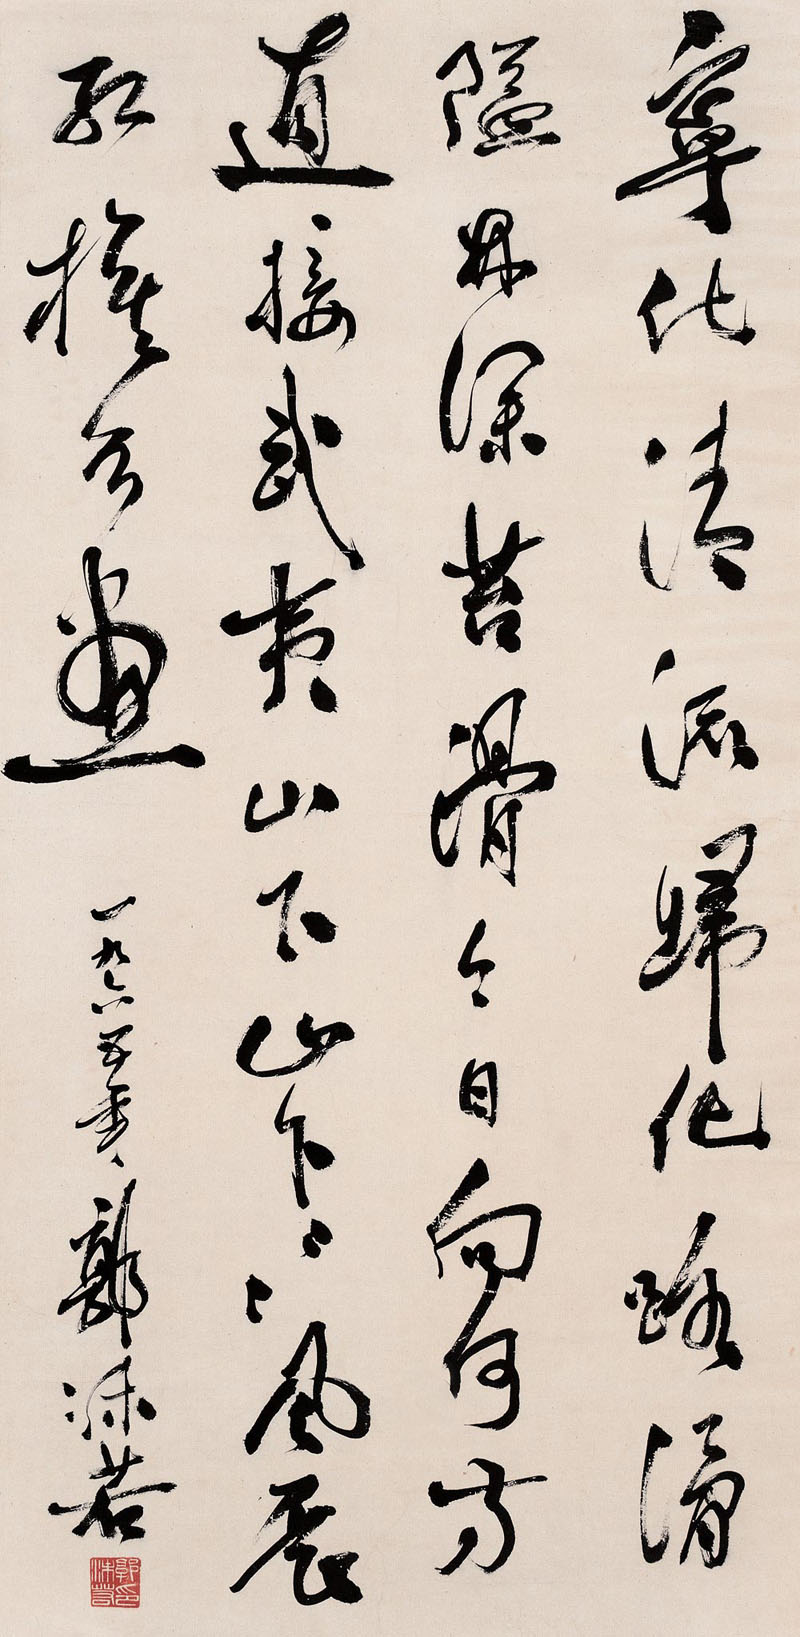 寧化清流歸化路滑
隘林深苔滑今日向何方
直接武夷山下山下風展
紅旗如畫
一九六五年
郭沫若
郭沫若印